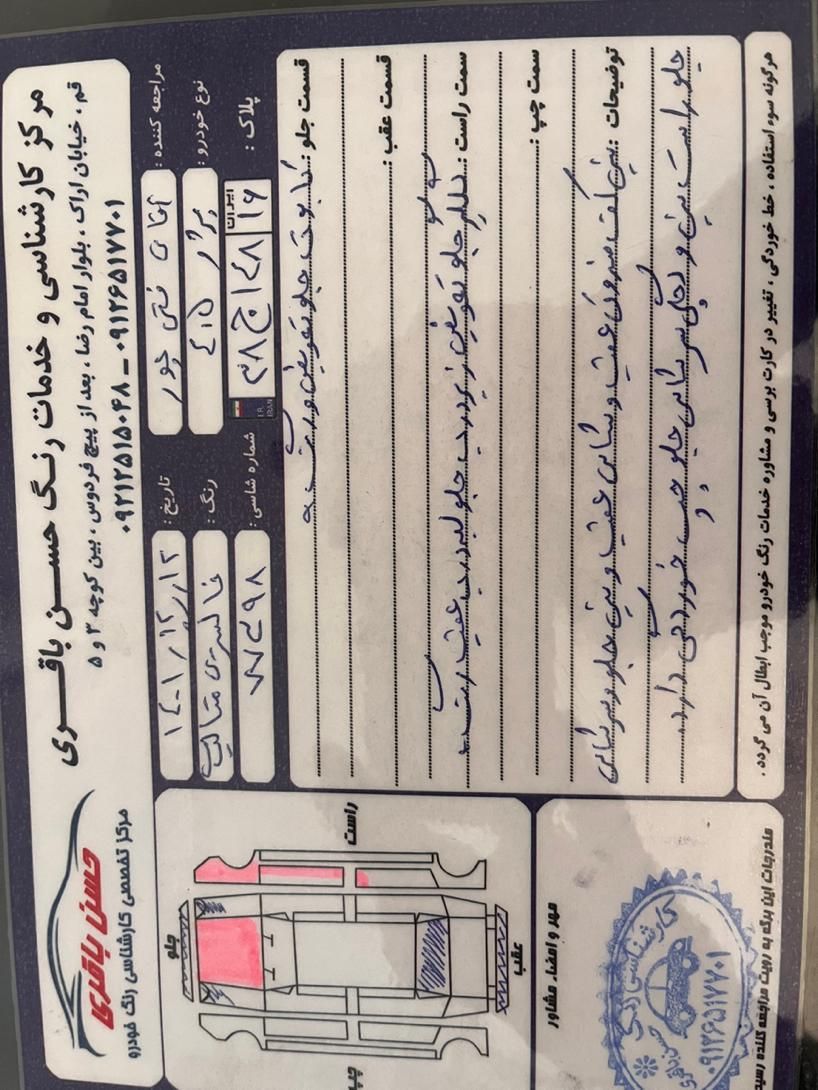 مرکز کارشناسی و خدمات رنگ حسن باقری
قم ، خیابان اراک ، بلوار امام رضا ، بعد از پیچ فردوس ، بین کوچه ۳ و ۵
۰۹۲۱۲۵۱۵۰۴۸ - ۰۹۱۲۶۵۱۷۷۰۱
حسن باقری
مرکز تخصصی کارشناسی رنگ خودرو
مراجعه کننده : آقای فتحی پور
تاریخ : ۱۴۰۱/۱۲/۱۲
نوع خودرو : پژو ۴۰۵
رنگ : خاکستری متالیک
پلاک : ایران ۱۶ ۱۲۸ ج ۳۸
I.R. IRAN
شماره شاسی :
قسمت جلو : کاپوت جلو تعویض و رنگ
قسمت عقب :
سمت راست : گلگیر جلو تعویض زیر درب جلو لبه درب عقب رنگ
سمت چپ :
توضیحات : سینی کف صندوق عقب و شاسی عقب و سینی جلو و سرشاسی
جلو راست سینی و سرشاسی جلو چپ خوردگی دارد
هرگونه سوء استفاده ، خط خوردگی ، تغییر در کارت برسی و مشاوره خدمات رنگ خودرو موجب ابطال آن می گردد .
راست
جلو
عقب
چپ
مهر و امضاء مشاور
کارشناسی رنگ
۰۹۱۲۶۵۱۷۷۰۱
مندرجات این برگه به رویت مراجعه کننده رسید